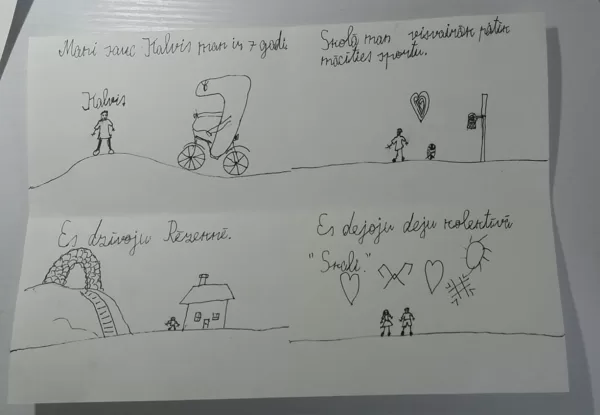 Mani sauc Kalvis man ir 7 gadi.
Kalvis
Skolā man visvairāk patīk
mācīties sportu.
Es dzīvoju Rēzeknē.
Es dejoju deju kolektīvā
"Svali."